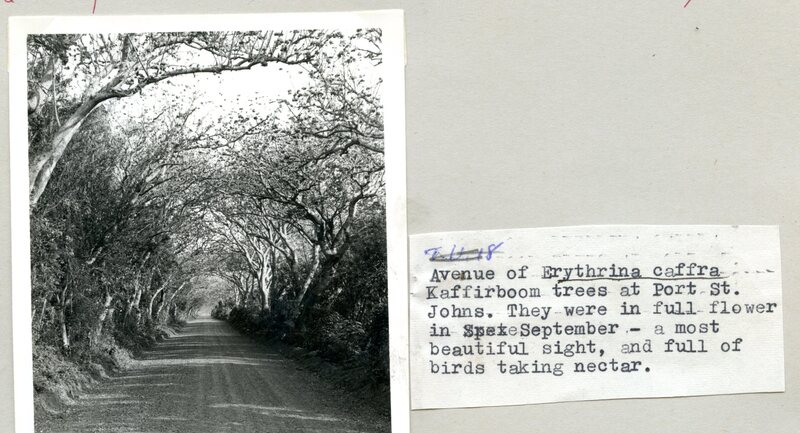 Avenue of Erythrina caffra
Kaffirboom trees at Port St.
Johns. They were in full flower
in September - a most
beautiful sight, and full of
birds taking nectar.